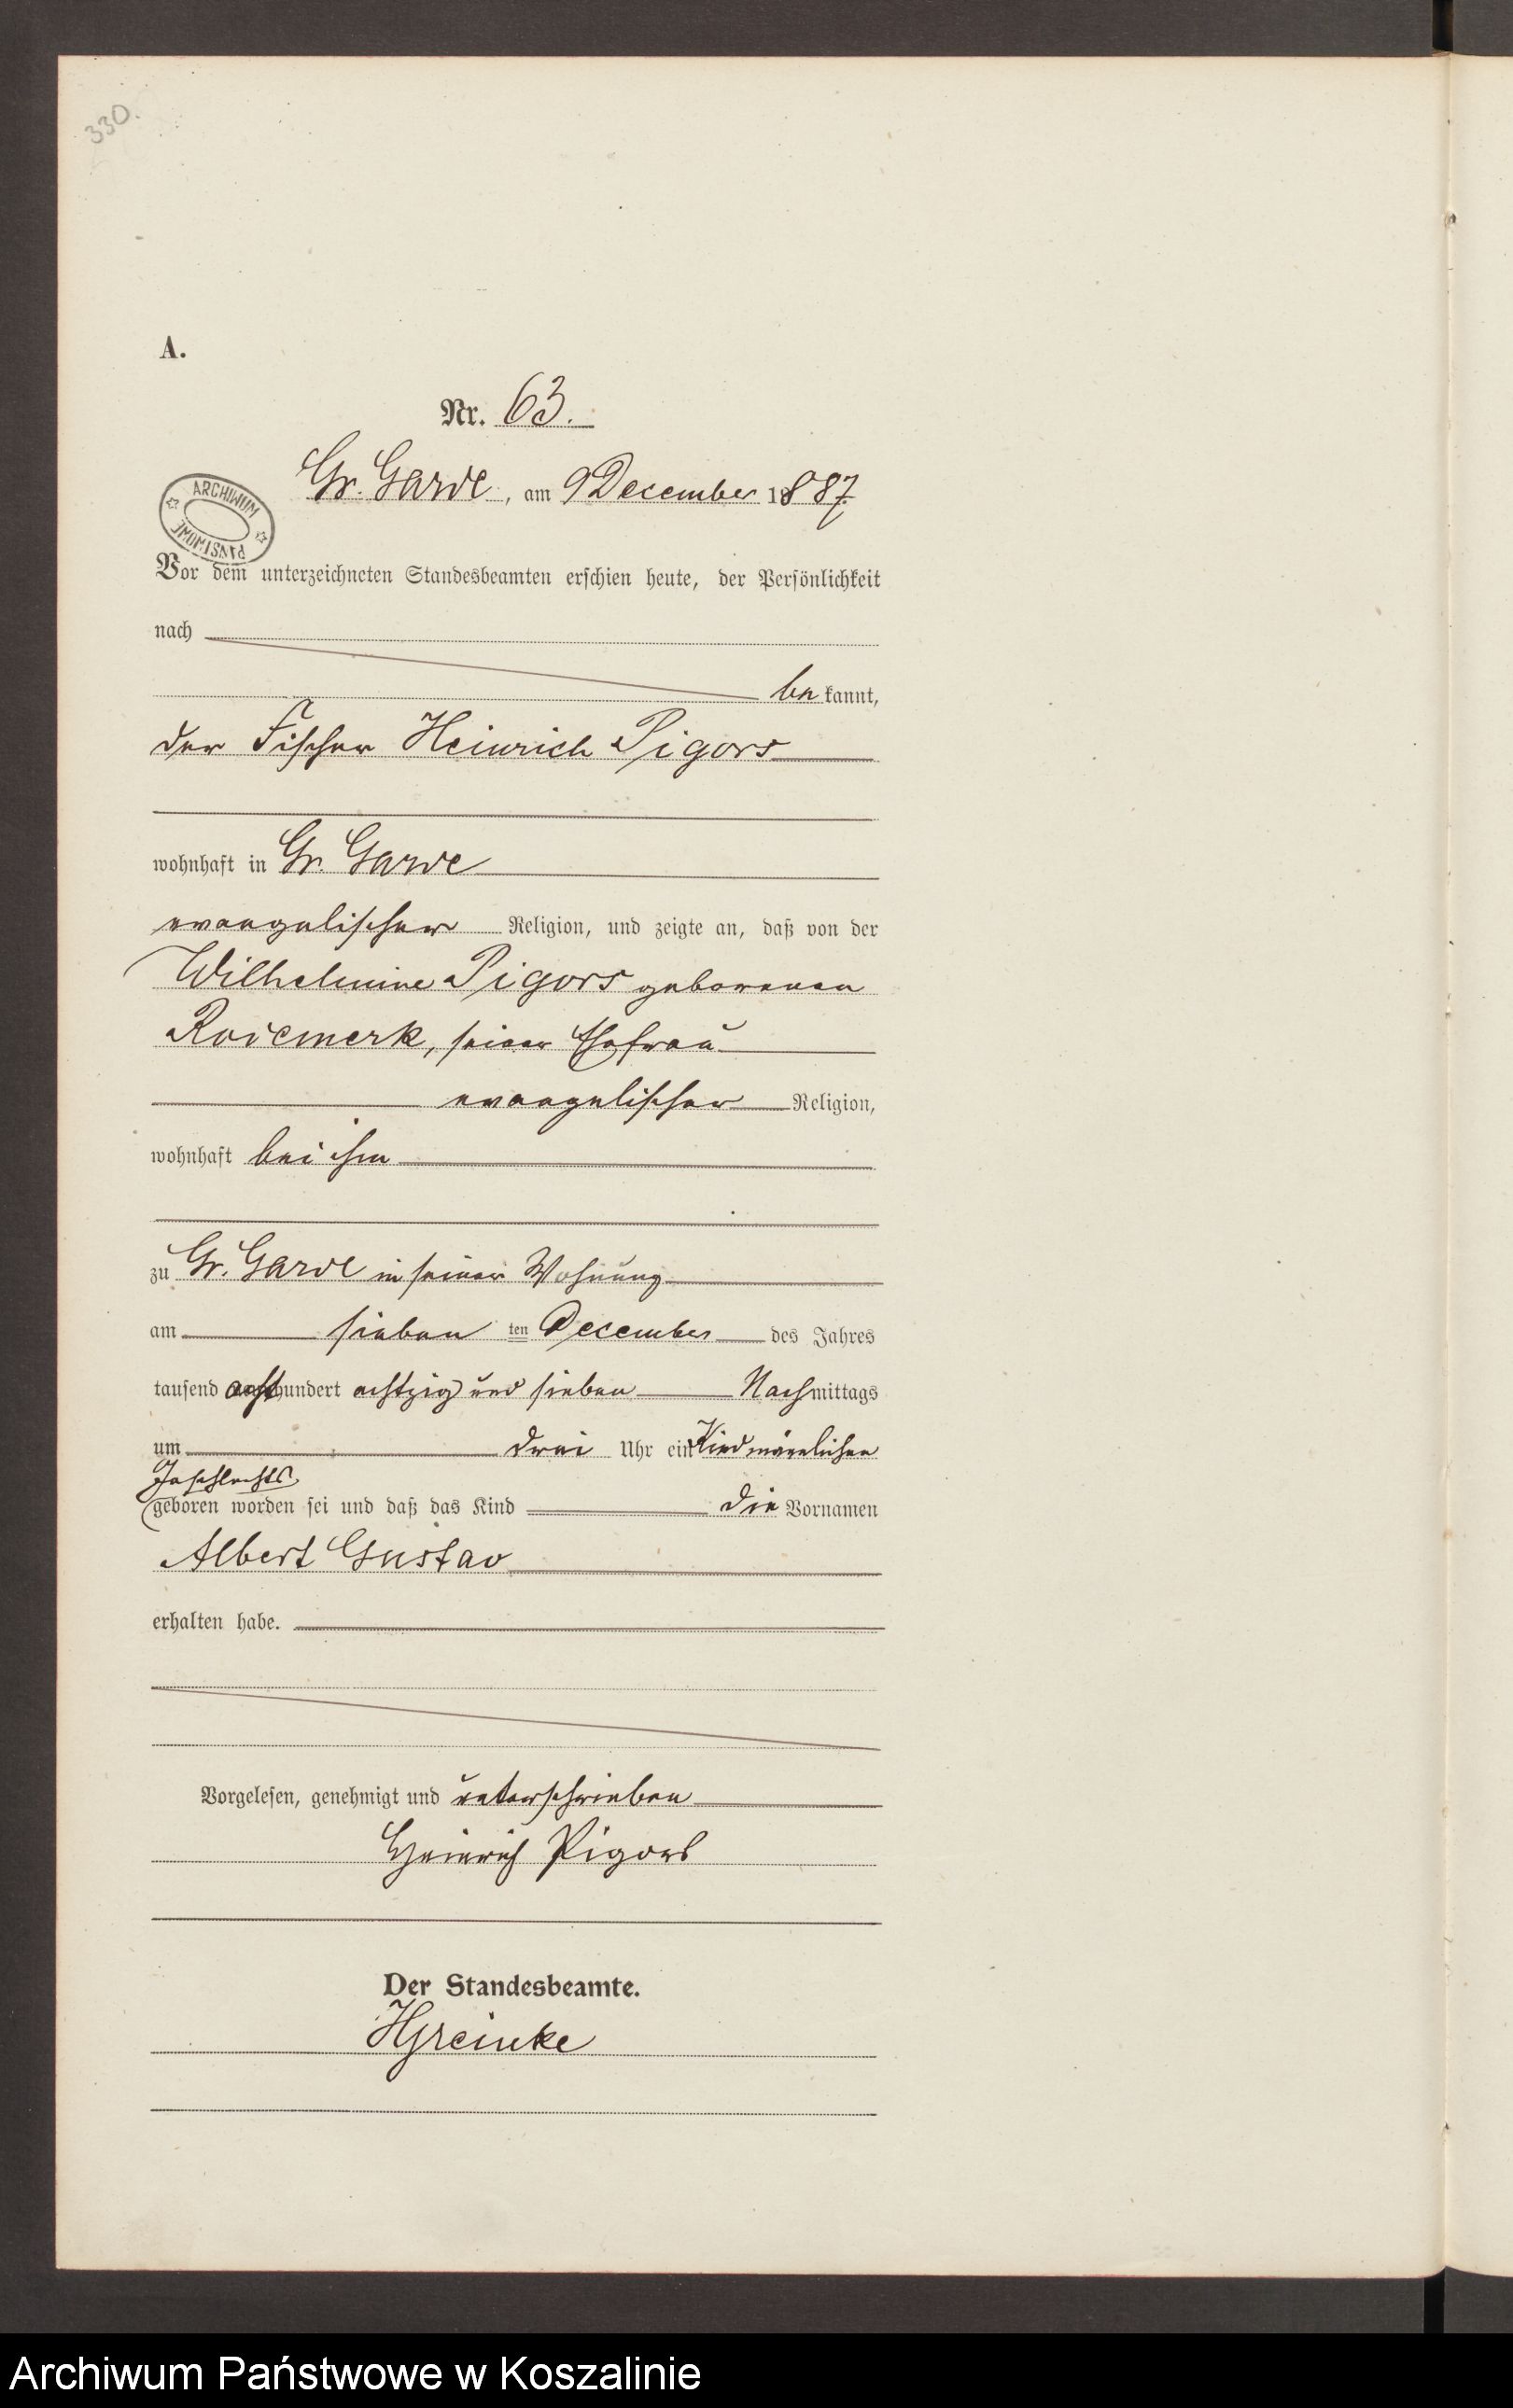 330.
A.
Nr. 63.
Gr. Garde, am 9 December 1887.
ARCHIWUM PAŃSTWOWE
Vor dem unterzeichneten Standesbeamten erschien heute, der Persönlichkeit
nach
bekannt,
der Fischer Heinrich Pigors
wohnhaft in Gr. Garde
evangelischer Religion, und zeigte an, daß von der
Wilhelmine Pigors geborenen
seiner Ehefrau
evangelischer Religion,
wohnhaft bei ihm
zu Gr. Garde in seiner Wohnung
am sieben ten December des Jahres
tausend achthundert achtzig und sieben Nachmittags
um drei Uhr ein Kind männlichen
Geschlechts
geboren worden sei und daß das Kind die Vornamen
Albert Gustav
erhalten habe.
Vorgelesen, genehmigt und unterschrieben
Heinrich Pigors
Der Standesbeamte.
Archiwum Państwowe w Koszalinie